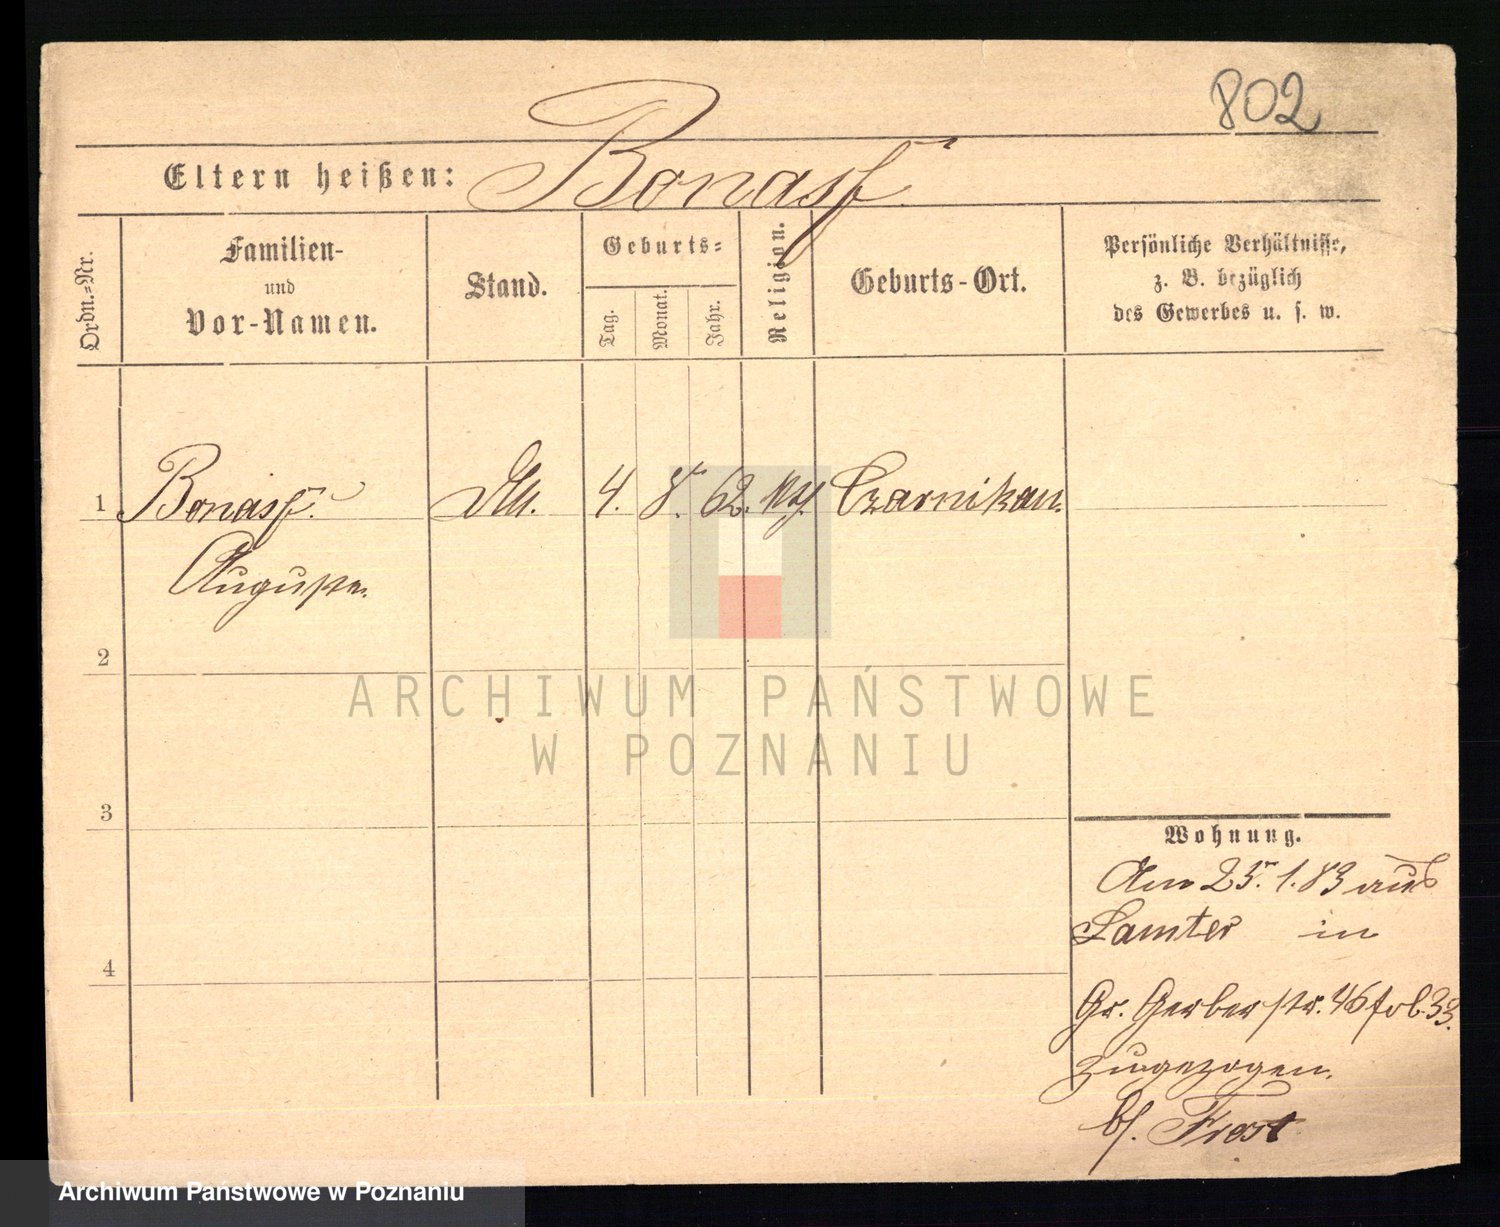 802
Eltern heißen: Bonasf
Ordn.=Nr.
Familien-
und
Vor-Namen.
Stand.
Geburts=
Tag.
Monat.
Jahr.
Religion.
Geburts-Ort.
Persönliche Verhältnisse,
z. B. bezüglich
des Gewerbes u. s. w.
1 Bonasf. 4. 8. 62. Czarnikau.
Auguste.
2
3
4
ARCHIWUM PAŃSTWOWE
W POZNANIU
Wohnung.
Am 25. 1. 83 aus
Samter in
Gr. Gerberstr. 46 fol. 33.
zugezogen.
b/. Frost
Archiwum Państwowe w Poznaniu